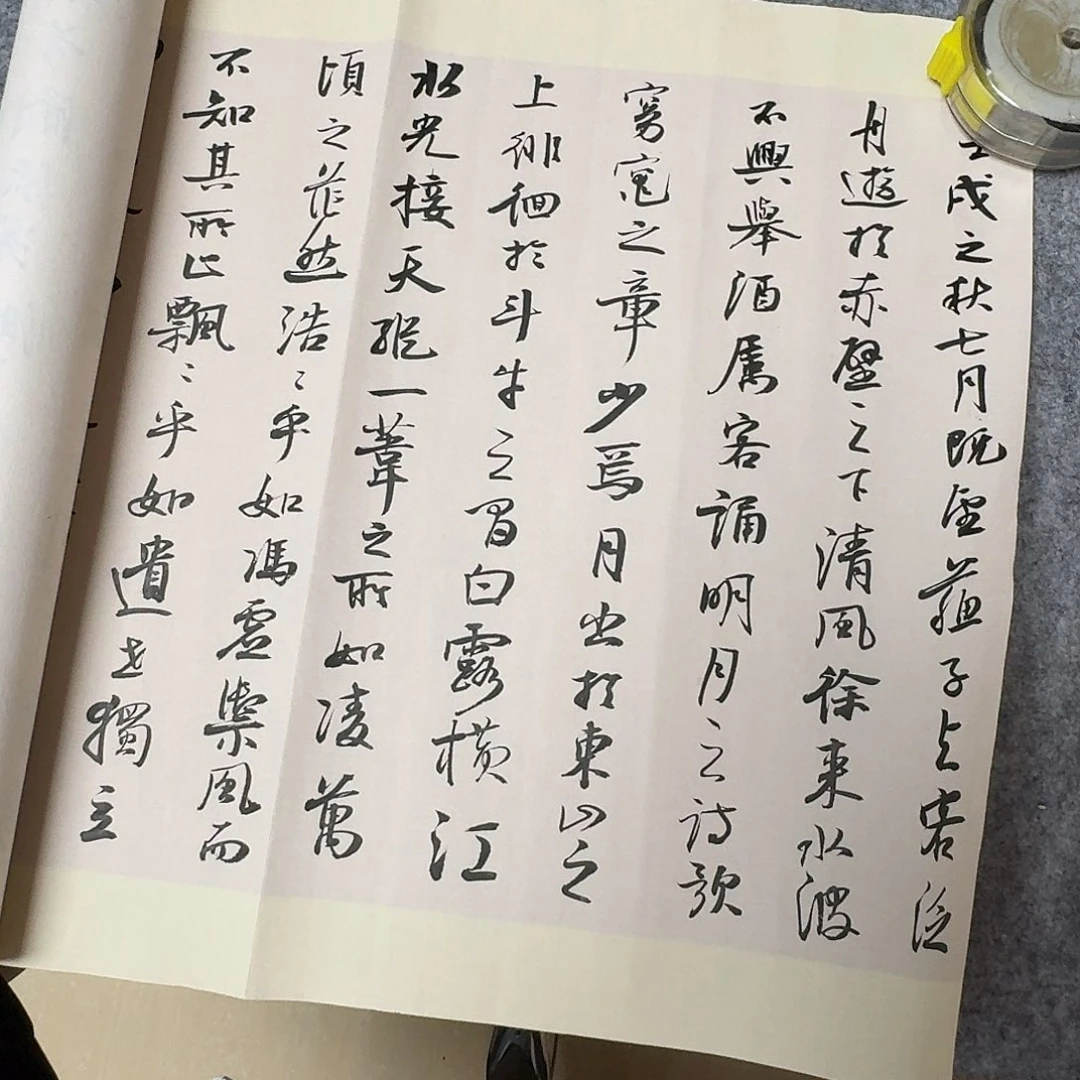 壬戌之秋七月既望蘇子与客泛
舟遊於赤壁之下清風徐来水波
不興舉酒属客誦明月之詩歌
窈窕之章少焉月出於東山之
上徘徊於斗牛之間白露橫江
水光接天縱一葦之所如凌萬
頃之茫然浩〻乎如馮虛禦風而
不知其所止飄〻乎如遺世獨立